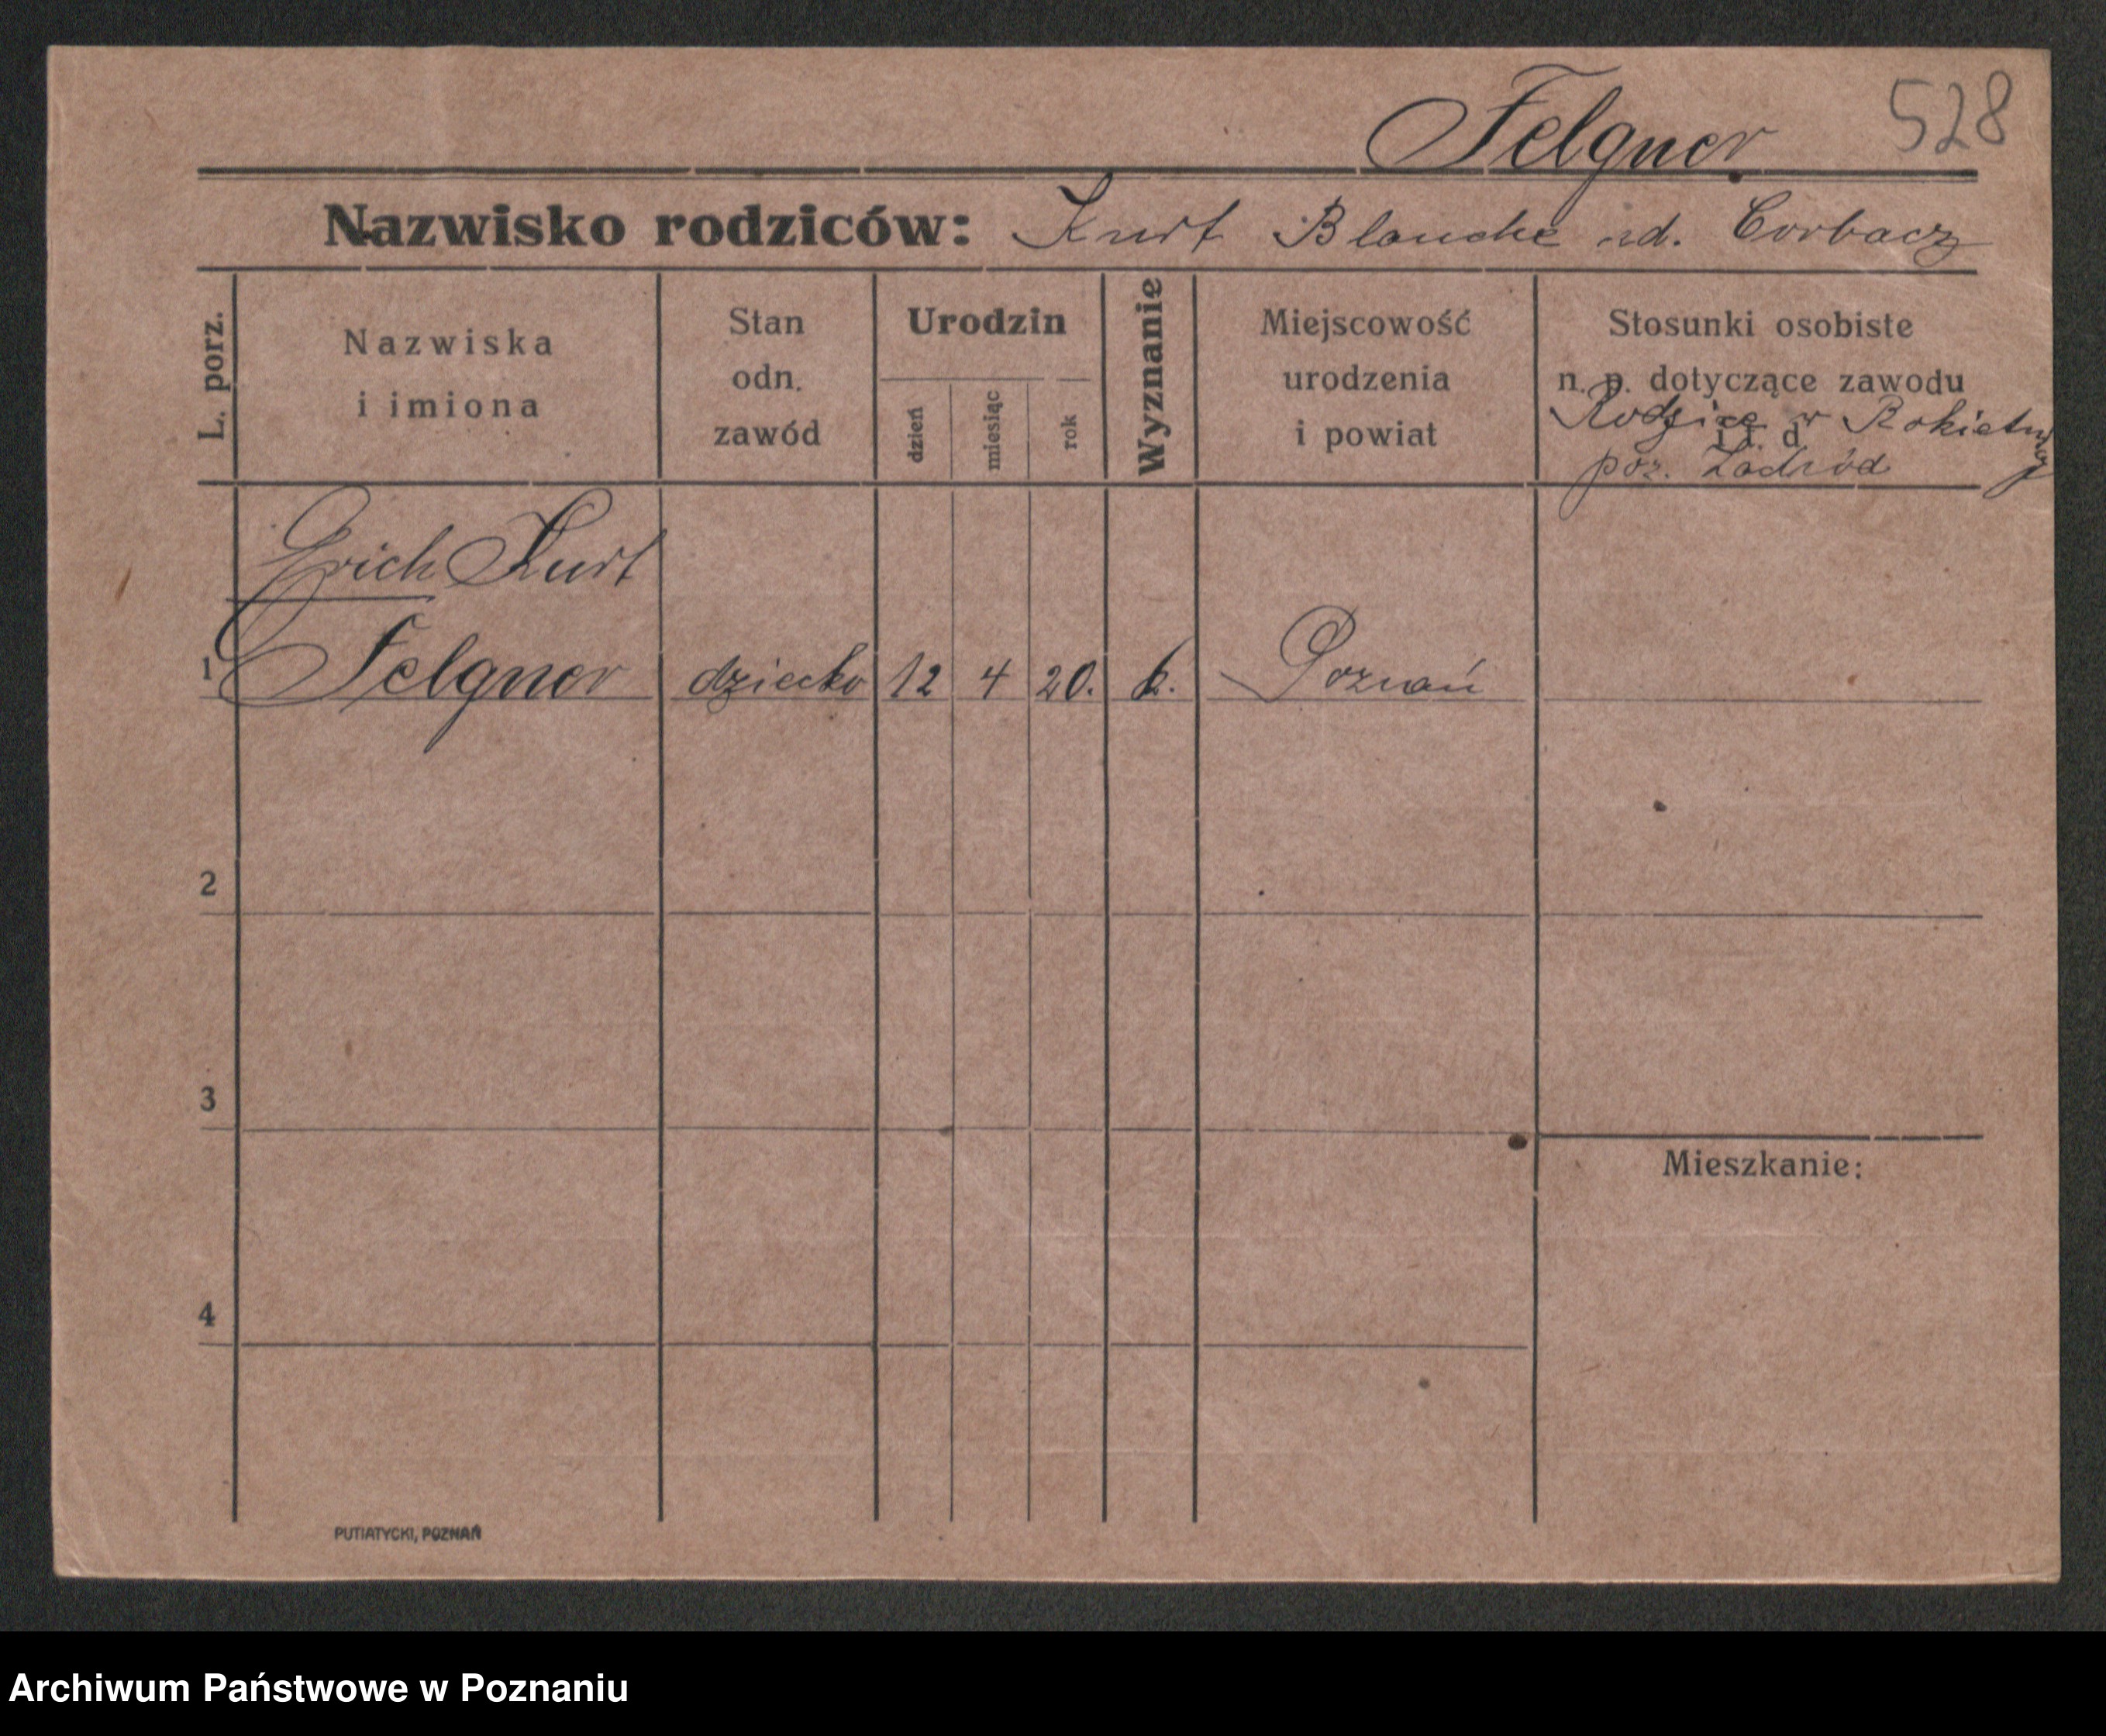 Felgner 528
Nazwisko rodziców: Kurt Blanche ud. Corbacz
L. porz.
Nazwiska
i imiona
Stan
odn.
zawód
Urodzin
dzień
miesiąc
rok
Wyznanie
Miejscowość
urodzenia
i powiat
Stosunki osobiste
n. p. dotyczące zawodu
i t. d.
Rodzice w Rokietnicy
poz.
Erich Kurt
1 Felgner dziecko 12 4 20. k. Poznań
2
3
Mieszkanie:
4
PUTIATYCKI, POZNAŃ
Archiwum Państwowe w Poznaniu